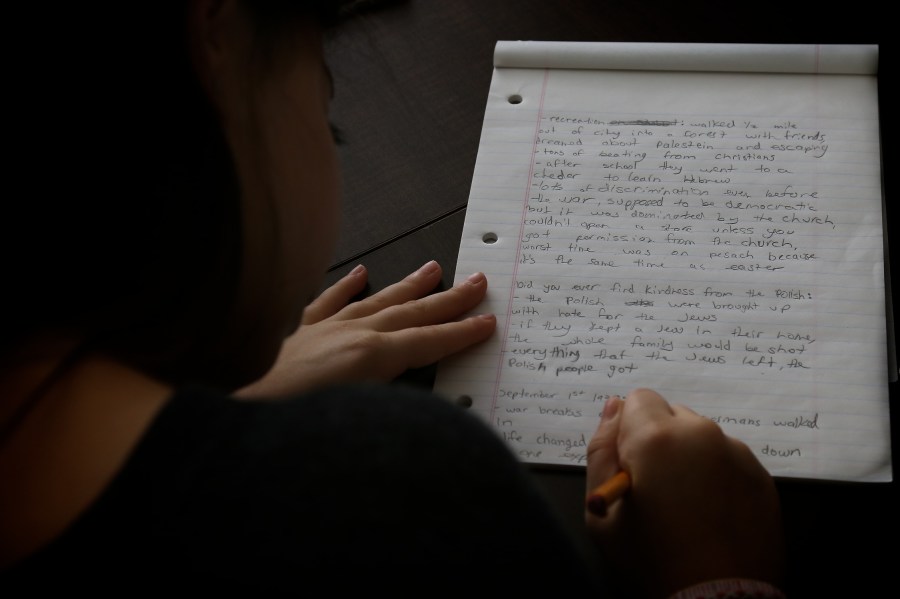 - recreation : walked 1/2 mile
out of city into a forest with friends
dreamed about Palestein and escaping
- tons of beating from christians
- after school they went to a
cheder to learn Hebrew
- lots of discrimination even before
the war, supposed to be democratic
but it was dominated by the church,
couldn't open a store unless you
got permission from the church,
worst time was on pesach because
it's the same time as easter
Did you ever find kindness from the Polish:
- the Polish were brought up
with hate for the Jews
- if they kept a Jew in their home,
the whole family would be shot
- everything that the Jews left, the
Polish people got
September 1st
- war breaks walked
in
life changed down